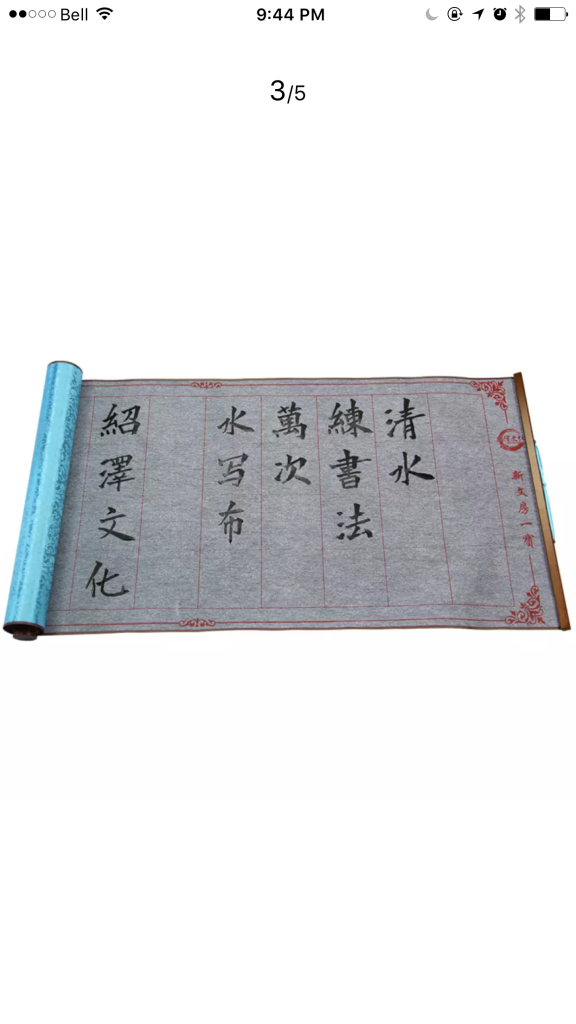 Bell 9:44 PM
3/5
新文房一寶
清水
練書法
萬次
水写布
紹澤文化